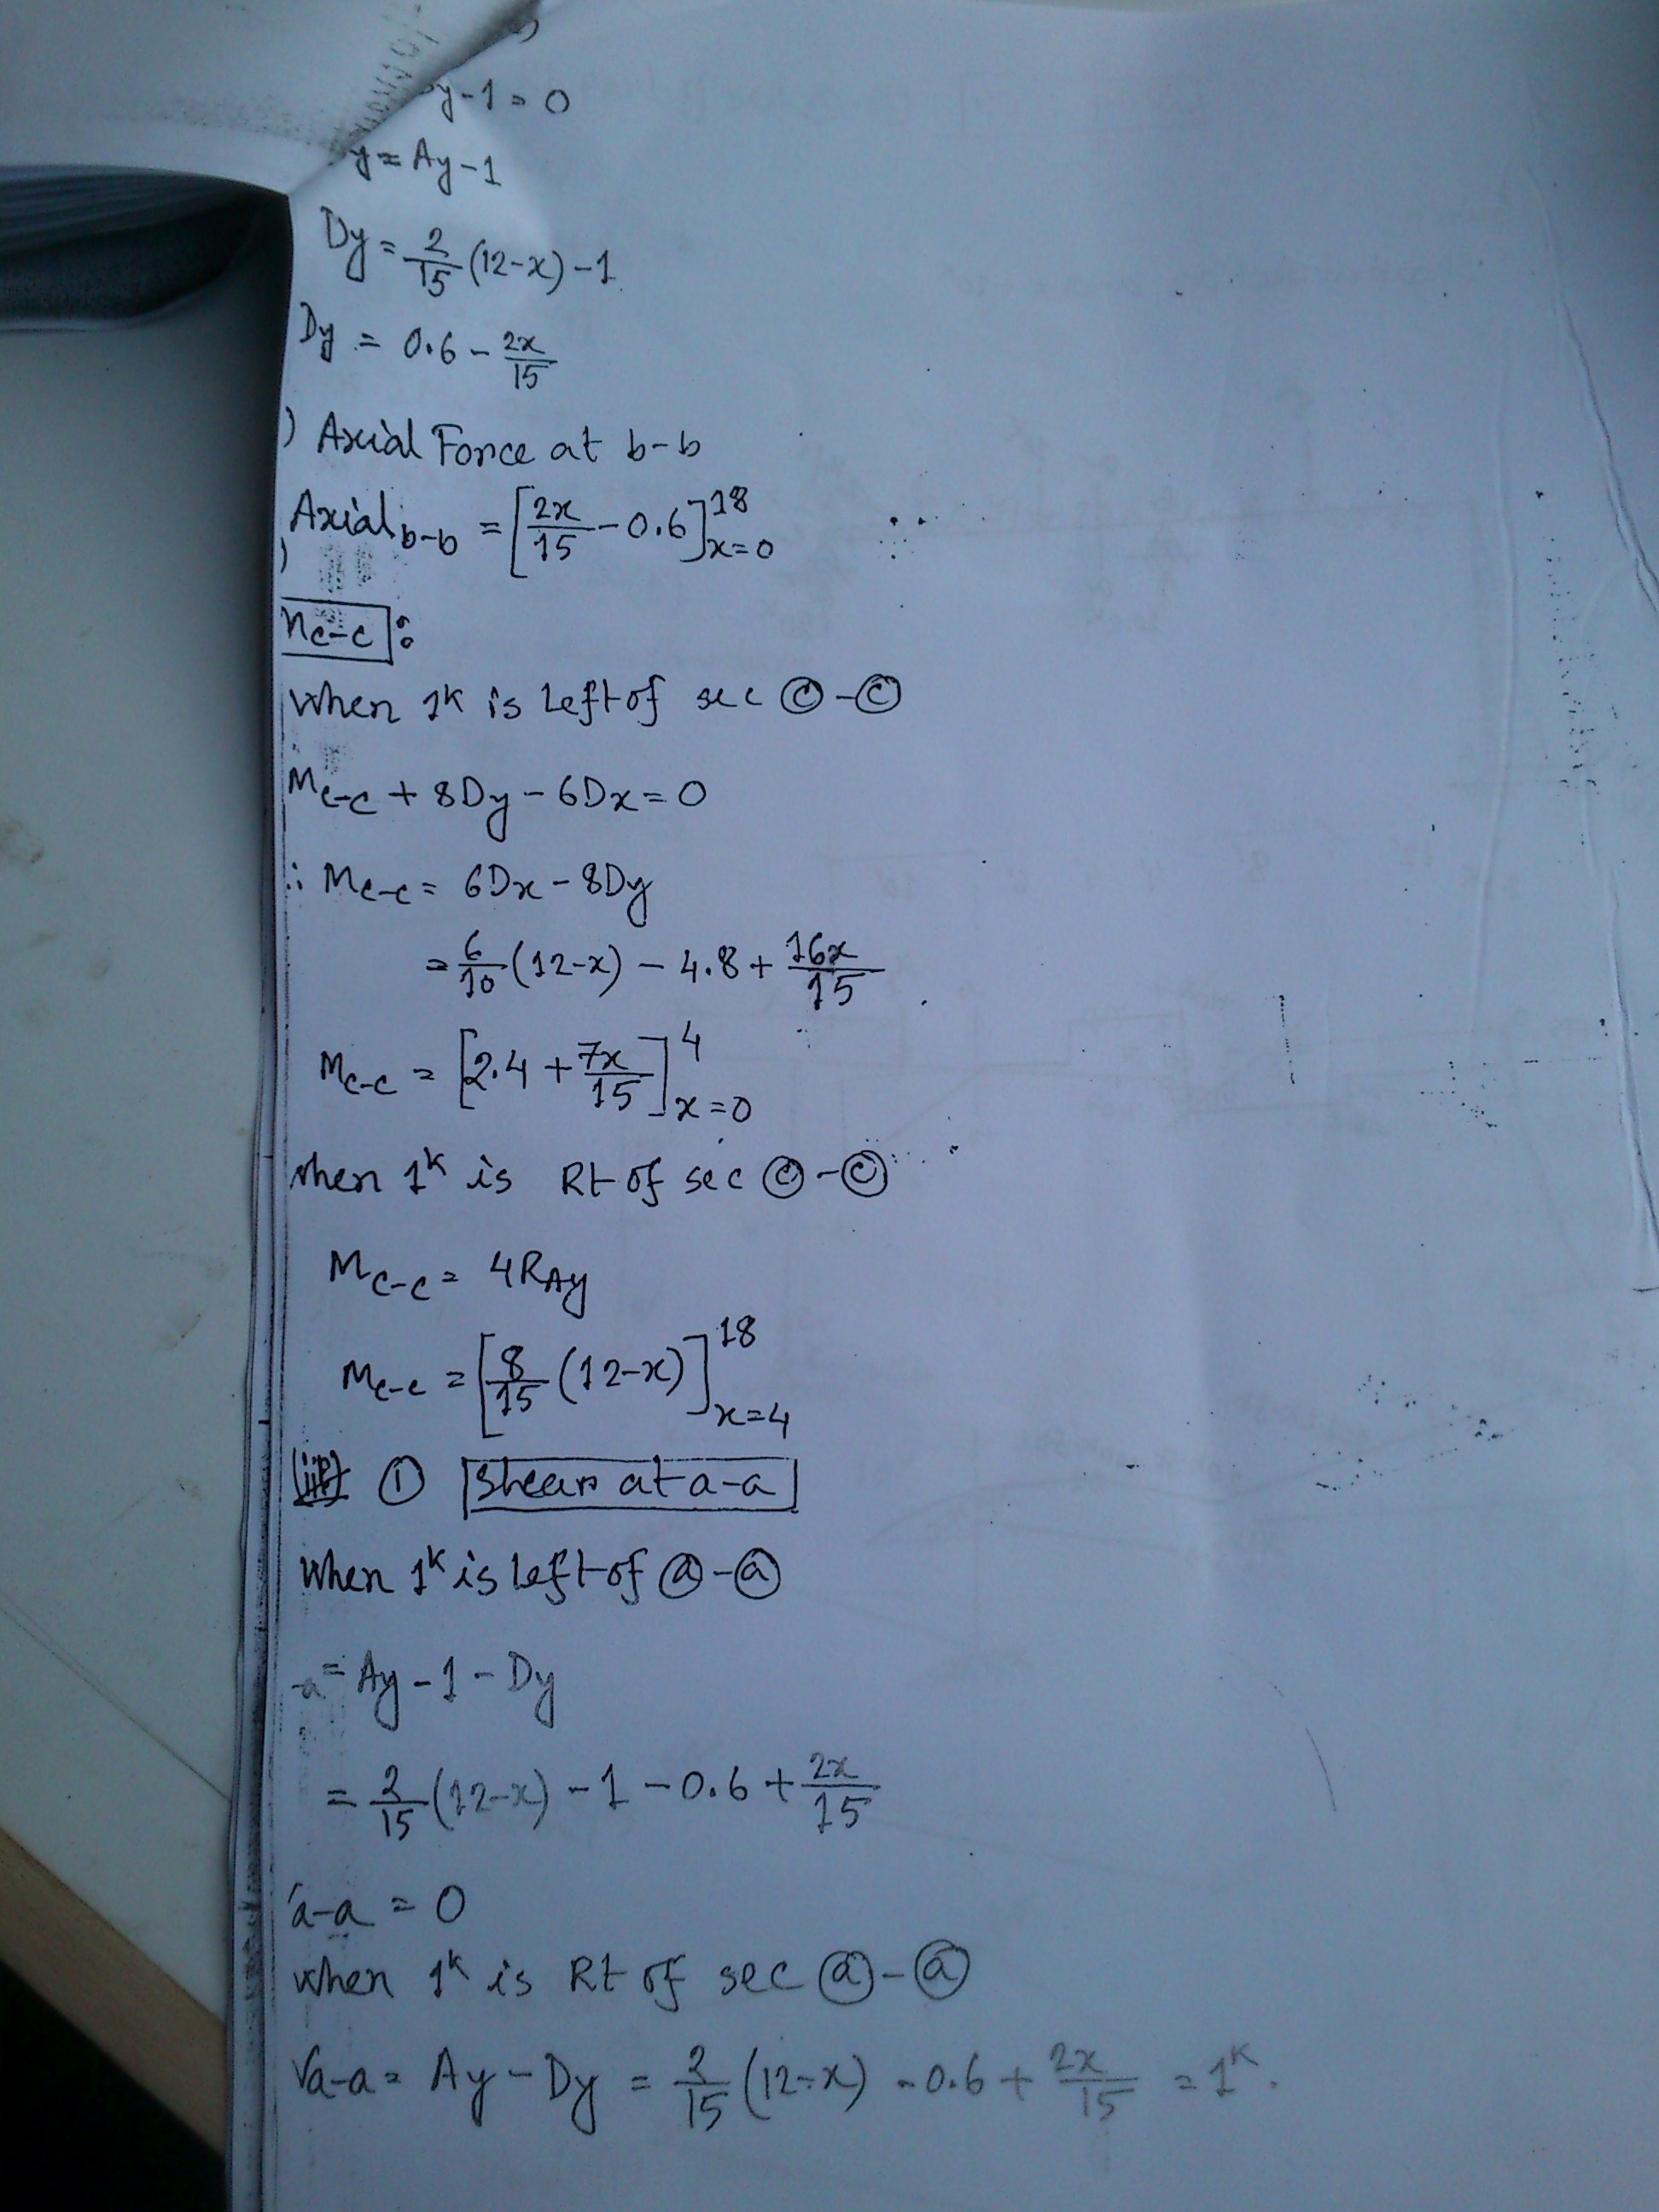 y-1=0
y=Ay-1
Dy=2/15(12-x)-1
Dy = 0.6-2x/15
) Axial Force at b-b
Axial b-b = [2x/15-0.6]^18 x=0
)
Mc-c:
when 1K is left of sec ©-©
Mc-c+8Dy-6Dx=0
∴ Mc-c= 6Dx-8Dy
=6/10(12-x)-4.8+16x/15
Mc-c=[2.4+7x/15]^4 x=0
when 1K is Rt of sec ©-©
Mc-c= 4RAy
Mc-c=[8/15(12-x)]^18 x=4
① Shear at a-a
when 1K is left of ⓐ-ⓐ
-a=Ay-1-Dy
=2/15(12-x)-1-0.6+2x/15
a-a=0
when 1K is Rt of sec ⓐ-ⓐ
Va-a= Ay-Dy = 2/15(12-x)-0.6+2x/15=1K.